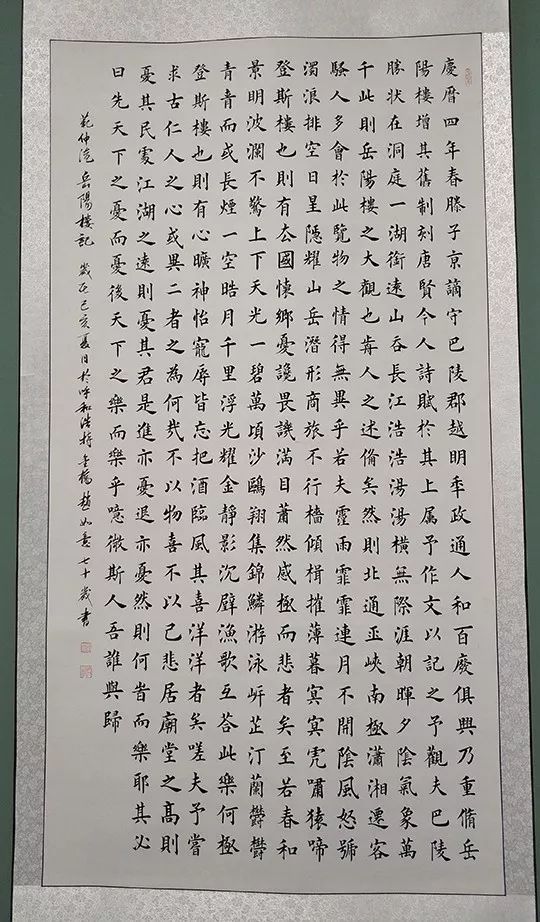 慶曆四年春滕子京謫守巴陵郡越明秊政通人和百廢俱興乃重脩岳
陽樓增其舊制刻唐賢今人詩賦於其上属予作文以記之予觀夫巴陵
勝狀在洞庭一湖銜遠山吞長江浩浩湯湯橫無際涯朝暉夕陰氣象萬
千此則岳陽樓之大觀也歬人之述俻矣然則北通巫峽南極瀟湘遷客
騷人多會於此覽物之情得無異乎若夫霪雨霏霏連月不開陰風怒號
濁浪排空日星隱耀山岳潛形商旅不行檣傾楫摧薄暮冥冥虎嘯猿啼
登斯樓也則有去國懷鄉憂讒畏譏滿目蕭然感極而悲者矣至若春和
景明波瀾不驚上下天光一碧萬頃沙鷗翔集錦鱗游泳岸芷汀蘭鬱鬱
青青而或長煙一空皓月千里浮光耀金靜影沉璧漁歌互荅此樂何極
登斯樓也則有心曠神怡寵辱皆忘把酒臨風其喜洋洋者矣嗟夫予嘗
求古仁人之心或異二者之為何哉不以物喜不以己悲居廟堂之高則
憂其民處江湖之遠則憂其君是進亦憂退亦憂然則何旹而樂耶其必
曰先天下之憂而憂後天下之樂而樂乎噫微斯人吾誰與歸
范仲淹岳陽樓記 歲在己亥夏日於呼和浩特金橋趙如意七十歲書